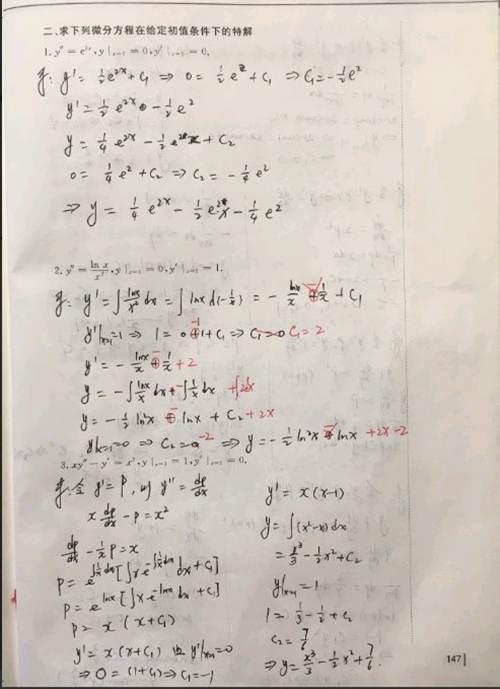 二、求下列微分方程在给定初值条件下的特解
1. y″ = e²ˣ, y|ₓ₌₁ = 0, y′|ₓ₌₁ = 0.
y′ = ½e²ˣ + C₁ ⇒ 0 = ½e² + C₁ ⇒ C₁ = -½e²
y′ = ½e²ˣ - ½e²
y = ¼e²ˣ - ½e²x + C₂
0 = ¼e² + C₂ ⇒ C₂ = -¼e²
⇒ y = ¼e²ˣ - ½e²x - ¼e²
2. y″ = ln x/x², y|ₓ₌₁ = 0, y′|ₓ₌₁ = 1.
y′ = ∫ lnx/x² dx = ∫ lnx d(-1/x) = - lnx/x - 1/x + C₁
y′|ₓ₌₁ = 1 ⇒ 1 = 0 - 1 + C₁ ⇒ C₁ = 0 C₁ = 2
y′ = - lnx/x - 1/x + 2
y = -∫ lnx/x dx - ∫ 1/x dx + ∫2dx
y = -½ ln²x - lnx + C₂ + 2x
y|ₓ₌₁ = 0 ⇒ C₂ = -2 ⇒ y = -½ ln²x - lnx + 2x - 2
3. xy″ - y′ = x², y|ₓ₌₁ = 1, y′|ₓ₌₁ = 0.
令 y′ = P, 则 y″ = dp/dx
x dp/dx - P = x²
dp/dx - 1/x P = x
P = e^∫1/x dx [∫x e^-∫1/x dx dx + C₁]
P = e^lnx [∫x e^-lnx dx + C₁]
P = x (x + C₁)
y′ = x (x + C₁) 由 y′|ₓ₌₁ = 0
⇒ 0 = (1 + C₁) ⇒ C₁ = -1
y′ = x (x-1)
y = ∫(x²-x)dx
= x³/3 - ½x² + C₂
y|ₓ₌₁ = 1
1 = 1/3 - 1/2 + C₂
C₂ = 7/6
⇒ y = x³/3 - ½x² + 7/6.
147